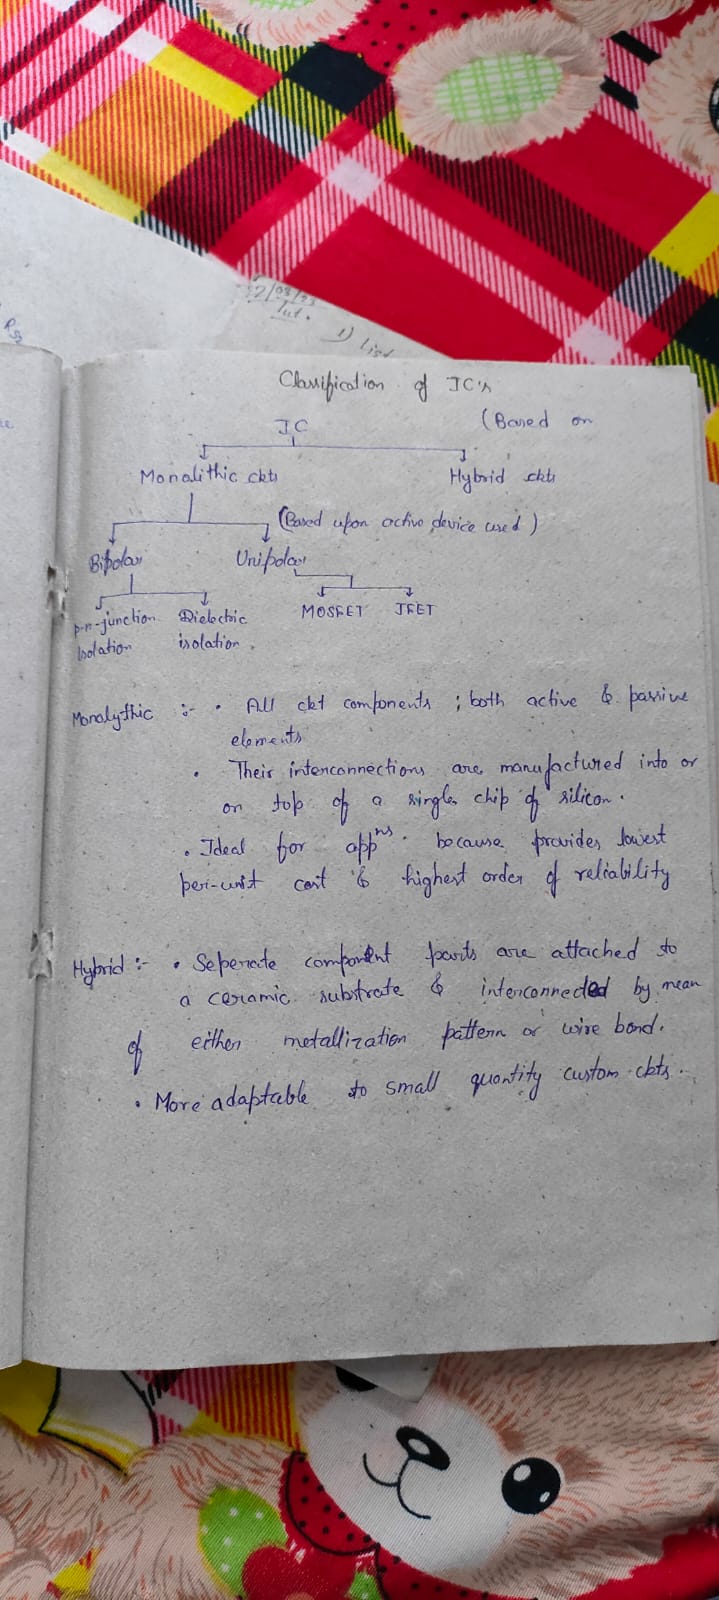 R
22/08/23
Tut.
1) List
Classification of IC's
IC (Based on
Monalithic ckts Hybrid ckts
(Based upon active device used)
Bipolar Unipolar
p-n-junction Dielectric MOSFET JFET
Isolation isolation.
Monalythic :- • All ckt components ; both active & passive
elements
• Their interconnections are manufactured into or
on top of a single chip of silicon.
• Ideal for appns. because provides lowest
per-unit cost & highest order of reliability
Hybrid :- • Seperate component parts are attached to
a ceramic substrate & interconnected by mean
of either metallization pattern or wire bond.
• More adaptable to small quantity custom ckts.